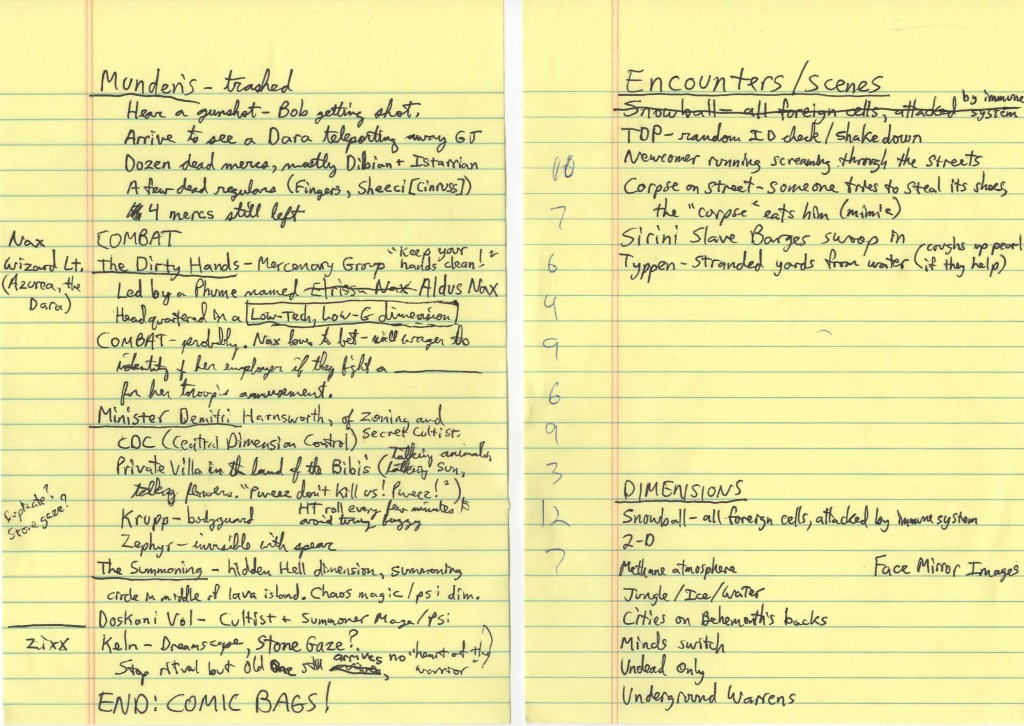 Munden's - trashed
Hear a gunshot - Bob getting shot.
Arrive to see a Dara teleporting away GJ
Dozen dead mercs, mostly Dibian + Istarrian
A few dead regulars (Fingers, Sheeci [Cinruss])
4 mercs still left
COMBAT
Nax
Wizard Lt.
(Azurea, the
Dara)
The Dirty Hands - Mercenary Group "Keep your hands clean!"
Led by a Phume named Elrissa Nax Aldus Nax
Headquartered in a Low-Tech, Low-G dimension
COMBAT - probably. Nax loves to bet - will wager the
identity of her employer if they fight a ________
for her troop's amusement.
Minister Demitri Harnsworth, of Zoning and
CDC (Central Dimension Control) Secret Cultist.
Private Villa in the land of the Bibis (talking animals,
talking sun,
talking flowers. "Pweez don't kill us! Pweez!")
HT roll every few minutes to
avoid
Krupp - bodyguard
Zephyr - invisible with spear
Stone gaze?
The Summoning - hidden Hell dimension, summoning
circle in middle of lava island. Chaos magic/psi dim.
Doskoni Vol - Cultist + Summoner Mage/Psi
Zixx
Keln - Dreamscape, Stone Gaze?
Stop ritual but Old One still arrives, no "heart of the warrior"
END: COMIC BAGS!
Encounters/Scenes
Snowball - all foreign cells, attacked by immune system
TDP - random ID check/shakedown
Newcomer running screaming through the streets
Corpse on street - someone tries to steal its shoes,
the "corpse" eats him (mimic)
Sirini Slave Barges swoop in
Typpen - stranded yards from water (coughs up pearl
if they help)
10
7
6
4
9
6
9
3
12
7
DIMENSIONS
Snowball - all foreign cells, attacked by immune system
2-D
Methane atmosphere
Face Mirror Images
Jungle/Ice/Water
Cities on Behemoth's backs
Minds switch
Undead Only
Underground Warrens